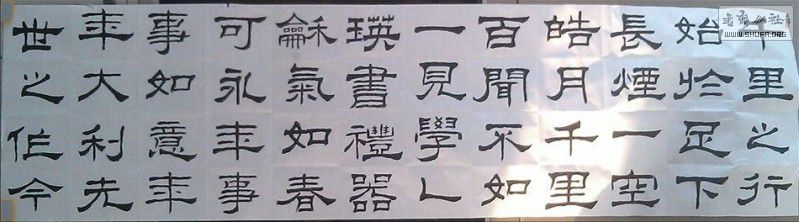 千里之行
始於足下
長煙一空
皓月千里
百聞不如
一見學乙
瑛書禮器
龢氣如春
可永年事
事如意年
年大利先
世之作今
WWW.SHUFA.ORG